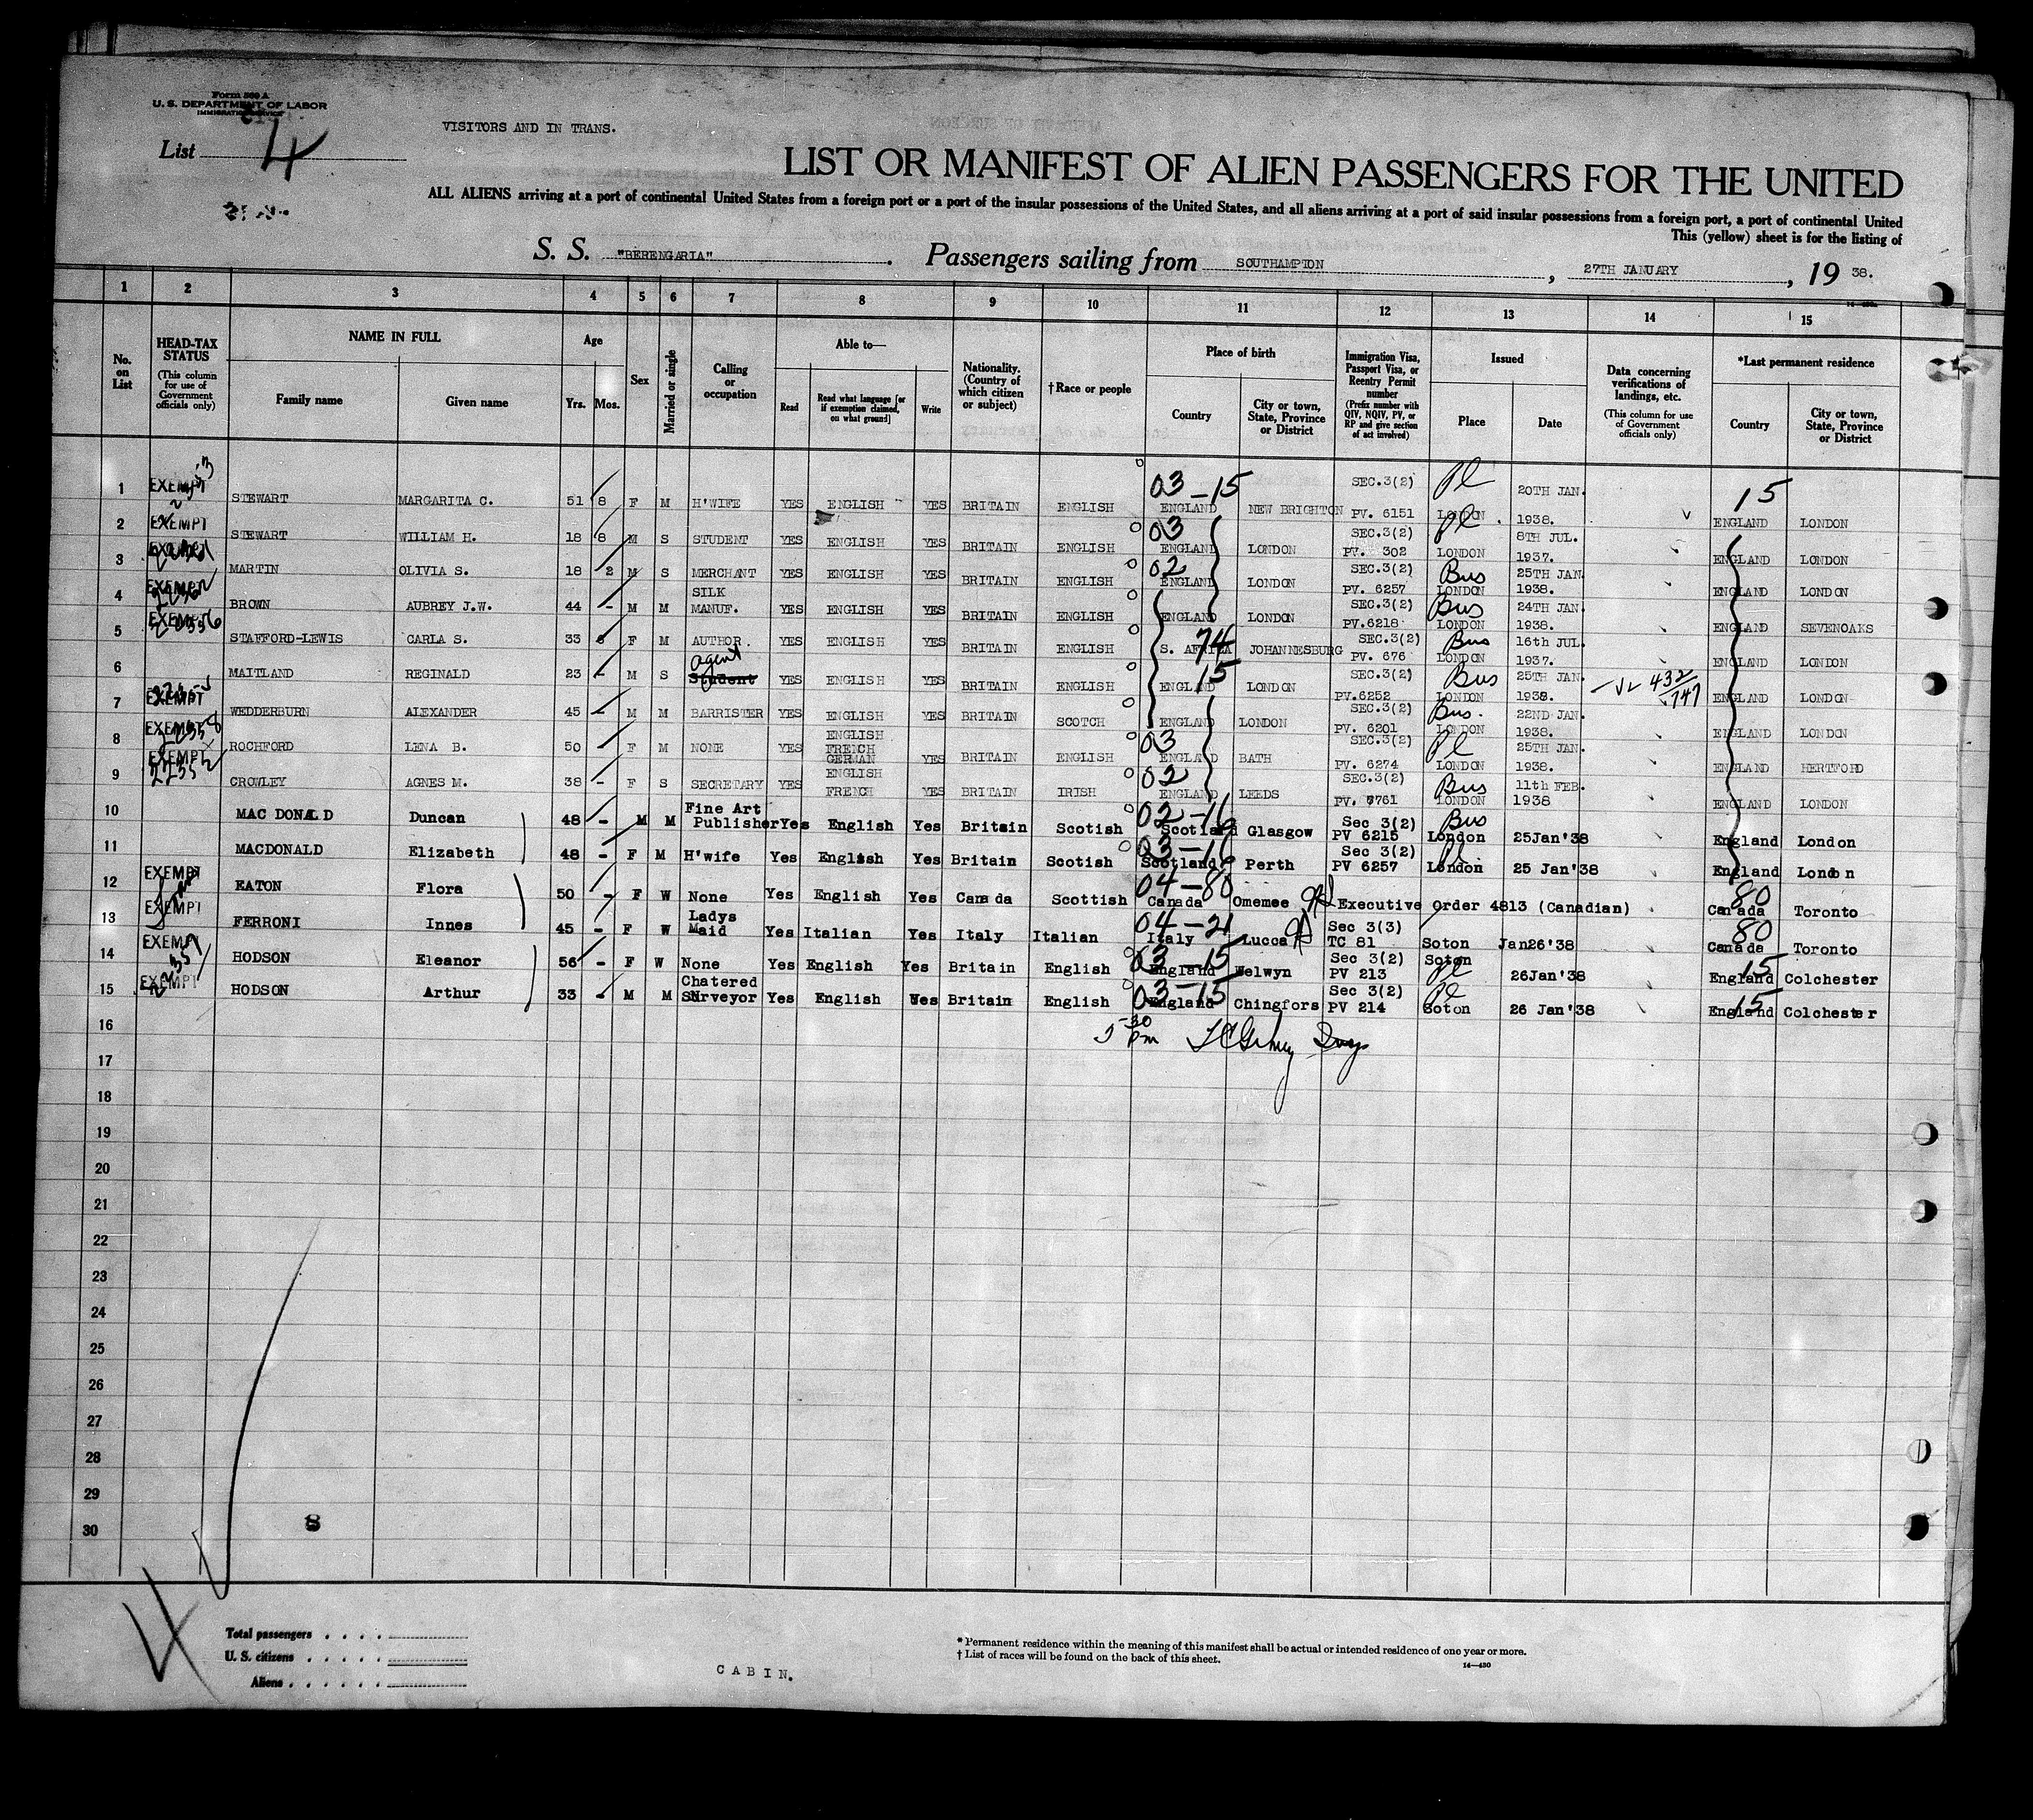 Form 500 A
U. S. DEPARTMENT OF LABOR
IMMIGRATION SERVICE
List 4
VISITORS AND IN TRANS.
LIST OR MANIFEST OF ALIEN PASSENGERS FOR THE UNITED
ALL ALIENS arriving at a port of continental United States from a foreign port or a port of the insular possessions of the United States, and all aliens arriving at a port of said insular possessions from a foreign port, a port of continental United
This (yellow) sheet is for the listing of
S. S. "BERENGARIA" . Passengers sailing from SOUTHAMPTON , 27TH JANUARY , 19 38.
1 2 3 4 5 6 7 8 9 10 11 12 13 14 15
No. on List
HEAD-TAX STATUS (This column for use of Government officials only)
NAME IN FULL
Family name Given name
Age
Yrs. Mos.
Sex
Married or single
Calling or occupation
Able to—
Read Read what language [or if exemption claimed, on what ground] Write
Nationality. (Country of which citizen or subject)
†Race or people
Place of birth
Country City or town, State, Province or District
Immigration Visa, Passport Visa, or Reentry Permit number (Prefix number with QIV, NQIV, PV, or RP and give section of act involved)
Issued
Place Date
Data concerning verifications of landings, etc. (This column for use of Government officials only)
*Last permanent residence
Country City or town, State, Province or District
1 EXEMPT STEWART MARGARITA C. 51 8 F M H'WIFE YES ENGLISH YES BRITAIN ENGLISH 03-15 ENGLAND NEW BRIGHTON SEC.3(2) PV. 6151 Pl LONDON 20TH JAN. 1938. 15 ENGLAND LONDON
2 EXEMPT STEWART WILLIAM H. 18 8 M S STUDENT YES ENGLISH YES BRITAIN ENGLISH 03 ENGLAND LONDON SEC.3(2) PV. 302 Pl LONDON 8TH JUL. 1937. ENGLAND LONDON
3 EXEMPT MARTIN OLIVIA S. 18 2 M S MERCHANT YES ENGLISH YES BRITAIN ENGLISH 02 ENGLAND LONDON SEC.3(2) PV. 6257 Bus LONDON 25TH JAN 1938. ENGLAND LONDON
4 EXEMPT BROWN AUBREY J.W. 44 - M M SILK MANUF. YES ENGLISH YES BRITAIN ENGLISH ENGLAND LONDON SEC.3(2) PV.6218 Bus LONDON 24TH JAN. 1938. ENGLAND SEVENOAKS
5 EXEMPT STAFFORD-LEWIS CARLA S. 33 6 F M AUTHOR YES ENGLISH YES BRITAIN ENGLISH 74 S. AFRICA JOHANNESBURG SEC.3(2) PV. 676 Bus LONDON 16th JUL. 1937. ENGLAND LONDON
6 MAITLAND REGINALD 23 - M S agent Student YES ENGLISH YES BRITAIN ENGLISH 15 ENGLAND LONDON SEC.3(2) PV.6252 Bus LONDON 25TH JAN. 1938. 432/747 ENGLAND LONDON
7 EXEMPT WEDDERBURN ALEXANDER 45 - M M BARRISTER YES ENGLISH YES BRITAIN SCOTCH ENGLAND LONDON SEC.3(2) PV. 6201 Bus. LONDON 22ND JAN. 1938. ENGLAND LONDON
8 EXEMPT ROCHFORD LENA B. 50 - F M NONE YES ENGLISH FRENCH GERMAN YES BRITAIN ENGLISH 03 ENGLAND BATH SEC.3(2) PV. 6274 Pl LONDON 25TH JAN. 1938. ENGLAND HERTFORD
9 EXEMPT CROWLEY AGNES M. 38 - F S SECRETARY YES ENGLISH FRENCH YES BRITAIN IRISH 02 ENGLAND LEEDS SEC.3(2) PV. 6761 Bus LONDON 11th FEB. 1938 ENGLAND LONDON
10 MAC DONALD Duncan 48 - M M Fine Art Publisher Yes English Yes Britain Scotish 02-16 Scotland Glasgow Sec 3(2) PV 6215 Bus London 25Jan'38 England London
11 MACDONALD Elizabeth 48 - F M H'wife Yes English Yes Britain Scotish 03-16 Scotland Perth Sec 3(2) PV 6257 Pl London 25 Jan'38 England London
12 EXEMPT EATON Flora 50 - F W None Yes English Yes Canada Scottish 04-80 Canada Omemee Executive Order 4813 (Canadian) 80 Canada Toronto
13 EXEMPT FERRONI Innes 45 - F W Ladys Maid Yes Italian Yes Italy Italian 04-21 Italy Lucca Sec 3(3) TC 81 Soton Jan26'38 80 Canada Toronto
14 EXEMPT HODSON Eleanor 56 - F W None Yes English Yes Britain English 03-15 England Welwyn Sec 3(2) PV 213 Soton Pl 26Jan'38 15 England Colchester
15 EXEMPT HODSON Arthur 33 - M M Chatered Surveyor Yes English Yes Britain English 03-15 England Chingfors Sec 3(2) PV 214 Pl Soton 26 Jan'38 15 England Colchester
16 5-30 pm
17
18
19
20
21
22
23
24
25
26
27
28
29
30
8
Total passengers . . . .
U. S. citizens . . . . .
Aliens . . . . . .
CABIN.
* Permanent residence within the meaning of this manifest shall be actual or intended residence of one year or more.
† List of races will be found on the back of this sheet.
14—430